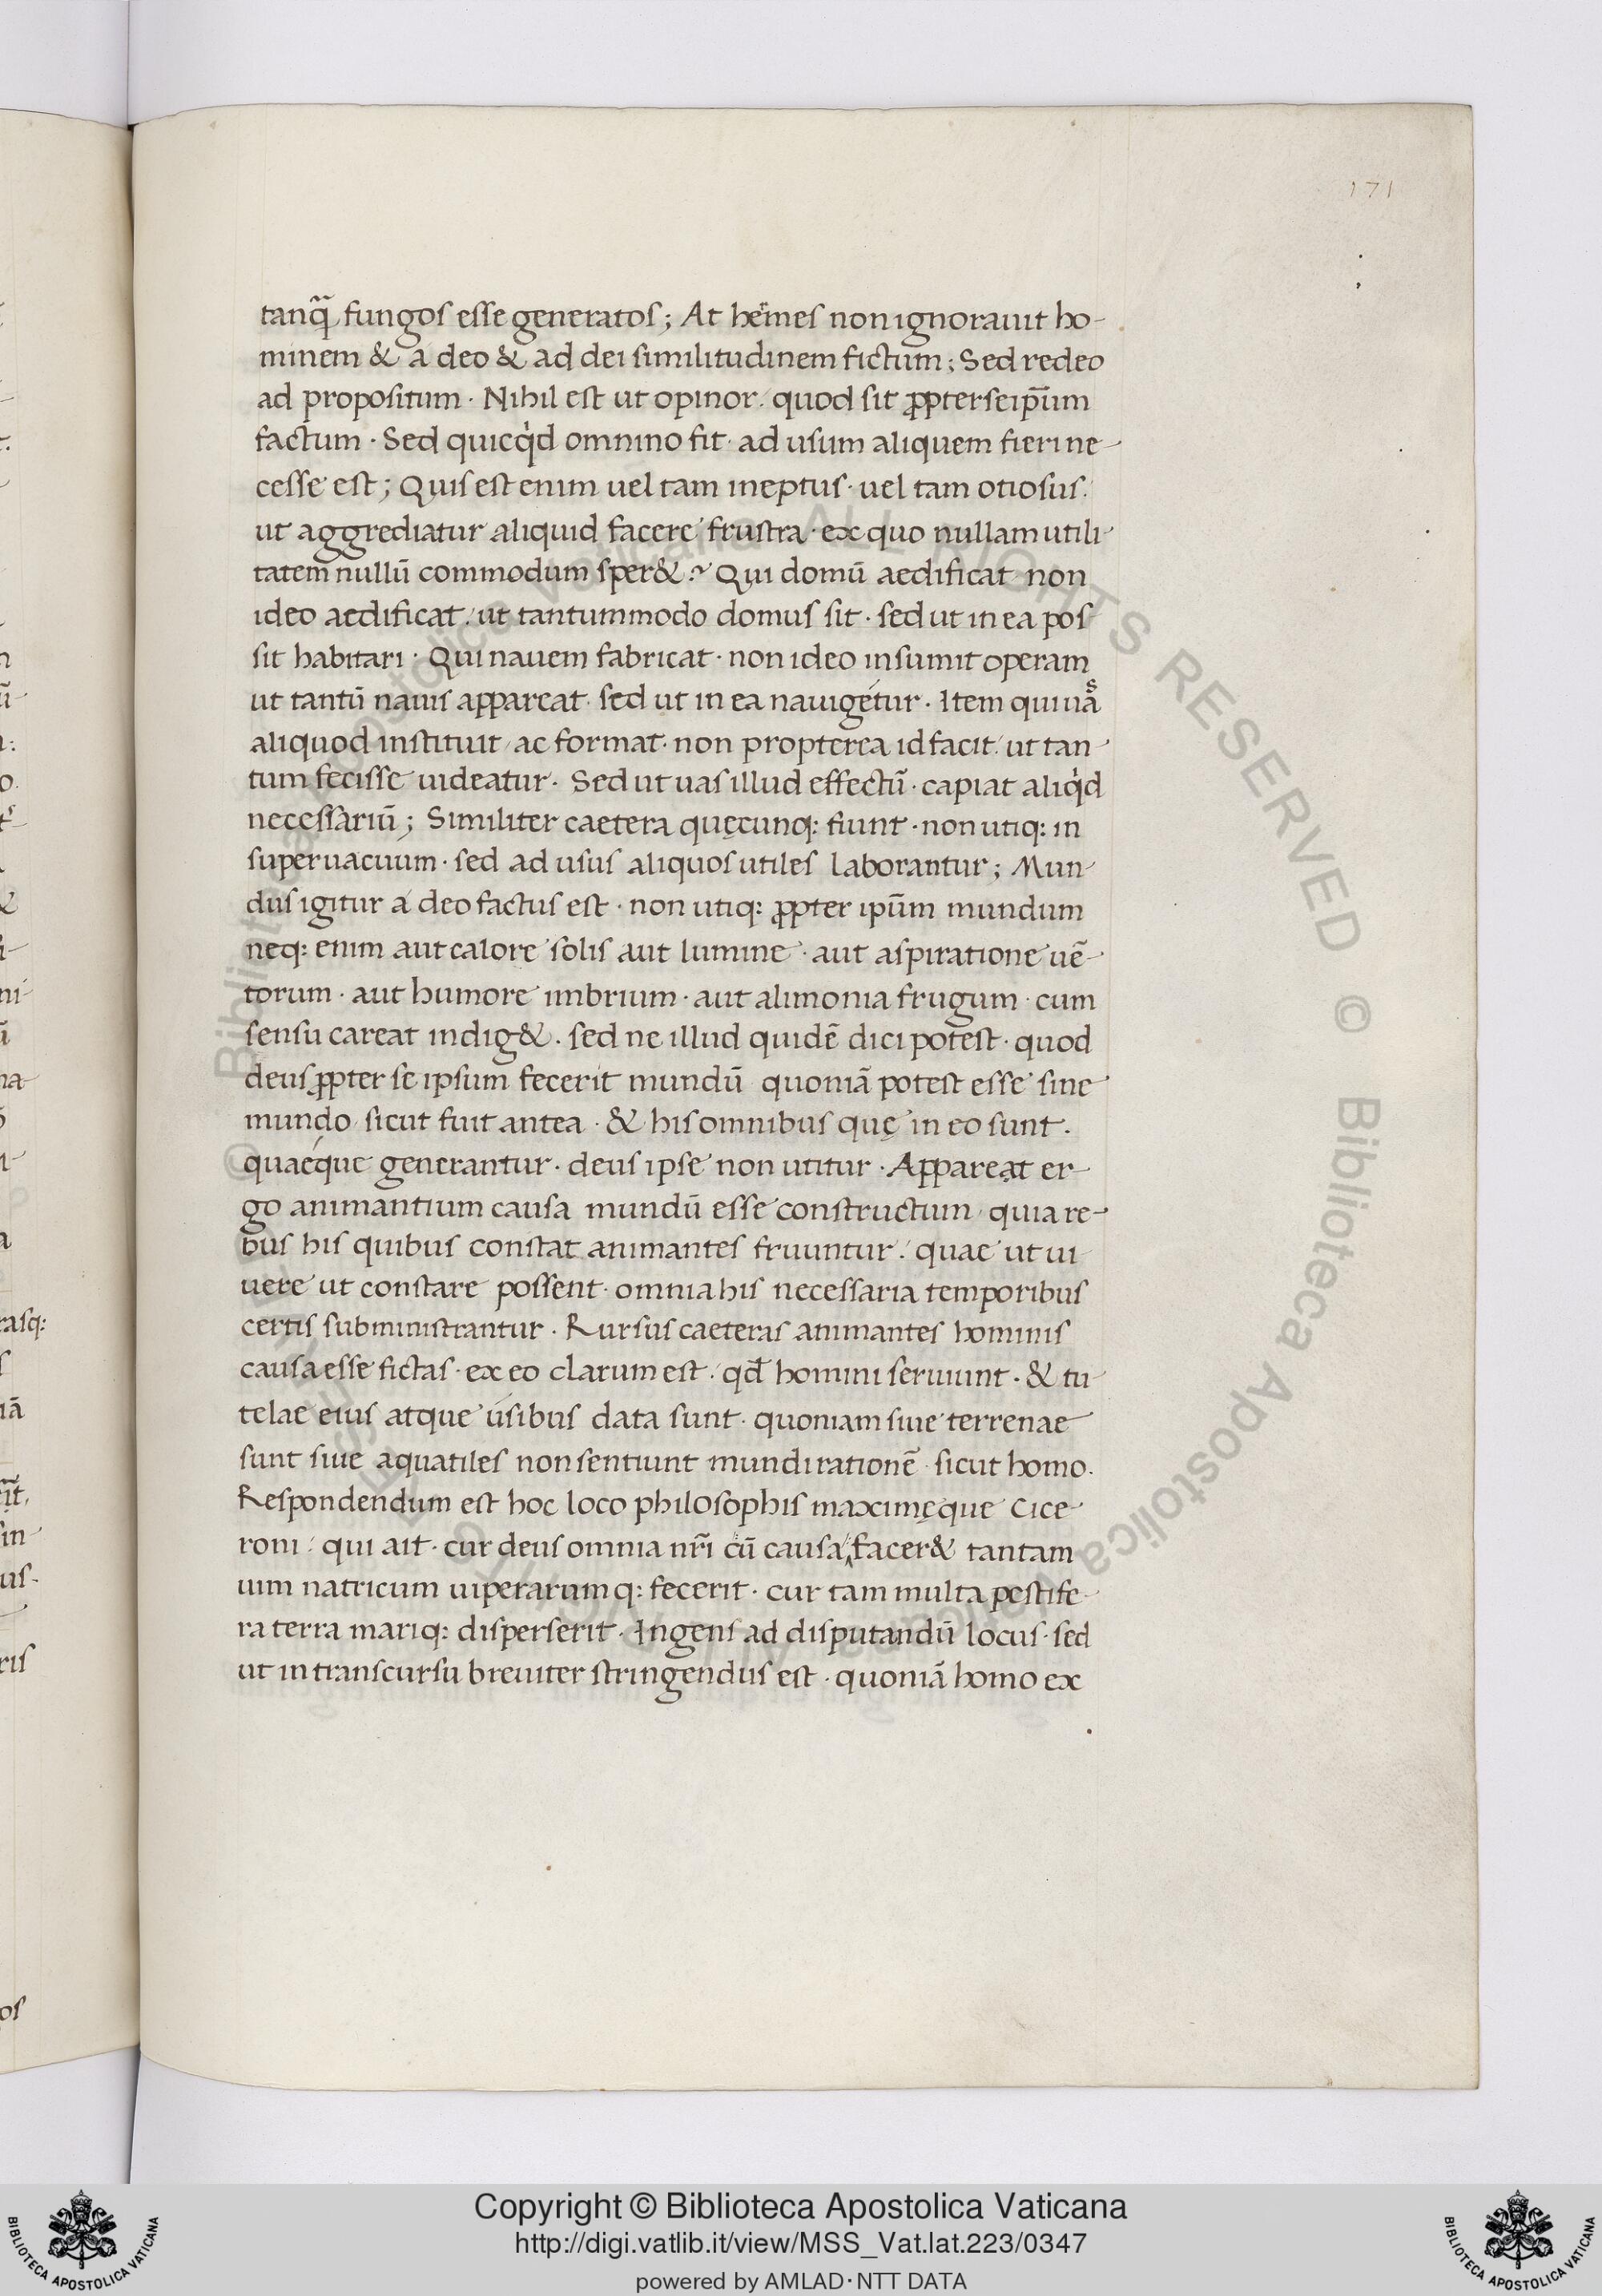 171
tanq̃ fungos esse generatos; At hermes non ignorauit ho-
minem & a deo & ad dei similitudinem fictum; Sed redeo
ad propositum · Nihil est ut opinor · quod sit ꝓpter seip̄um
factum · Sed quicqͥd omnino fit · ad usum aliquem fieri ne-
cesse est; Quis est enim uel tam ineptus · uel tam otiosus ·
ut aggrediatur aliquid facere frustra · ex quo nullam utili-
tatem nullū commodum sper& ? Qui domū aedificat non
ideo aedificat · ut tantummodo domus sit · sed ut in ea pos-
sit habitari · Qui nauem fabricat · non ideo insumit operam
ut tantū nauis appareat · sed ut in ea nauigetur · Item qui uas
aliquod instituit / ac format · non propterea id facit · ut tan-
tum fecisse uideatur · Sed ut uas illud effectū · capiat aliqͥd
necessariū; Similiter caetera quęcunq: fiunt · non utiq: in
superuacuum · sed ad usus aliquos utiles laborantur; Mun-
dus igitur a deo factus est · non utiq: ꝓpter ip̄um mundum
neq: enim aut calore solis aut lumine · aut aspiratione uē-
torum · aut humore imbrium · aut alimonia frugum · cum
sensu careat indig& · sed ne illud quidē dici potest · quod
deus ꝓpter se ipsum fecerit mundū quoniā potest esse sine
mundo sicut fuit antea · & his omnibus quę in eo sunt ·
quaeque generantur · deus ipse non utitur · Appareat er-
go animantium causa mundū esse constructum quia re-
bus his quibus constat animantes fruuntur · quae ut ui-
uere ut constare possent · omnia his necessaria temporibus
certis subministrantur · Rursus caeteras animantes hominis
causa esse fictas · ex eo clarum est · qđ homini seruiunt · & tu-
telae eius atque usibus data sunt · quoniam siue terrenae
sunt siue aquatiles non sentiunt mundi rationē sicut homo.
Respondendum est hoc loco philosophis maximęque Cice-
roni · qui ait · cur deus omnia nr̄i cū causa facer& tantam
uim natricum uiperarumq: fecerit · cur tam multa pestife-
ra terra mariq: disperserit · Ingens ad disputandū locus · sed
ut in transcursu breuiter stringendus est · quoniā homo ex
© Biblioteca Apostolica Vaticana ALL RIGHTS RESERVED © Biblioteca Apostolica Vaticana ALL RIGHTS RESERVED
Copyright © Biblioteca Apostolica Vaticana
http://digi.vatlib.it/view/MSS_Vat.lat.223/0347
powered by AMLAD·NTT DATA
BIBLIOTECA APOSTOLICA VATICANA
BIBLIOTECA APOSTOLICA VATICANA